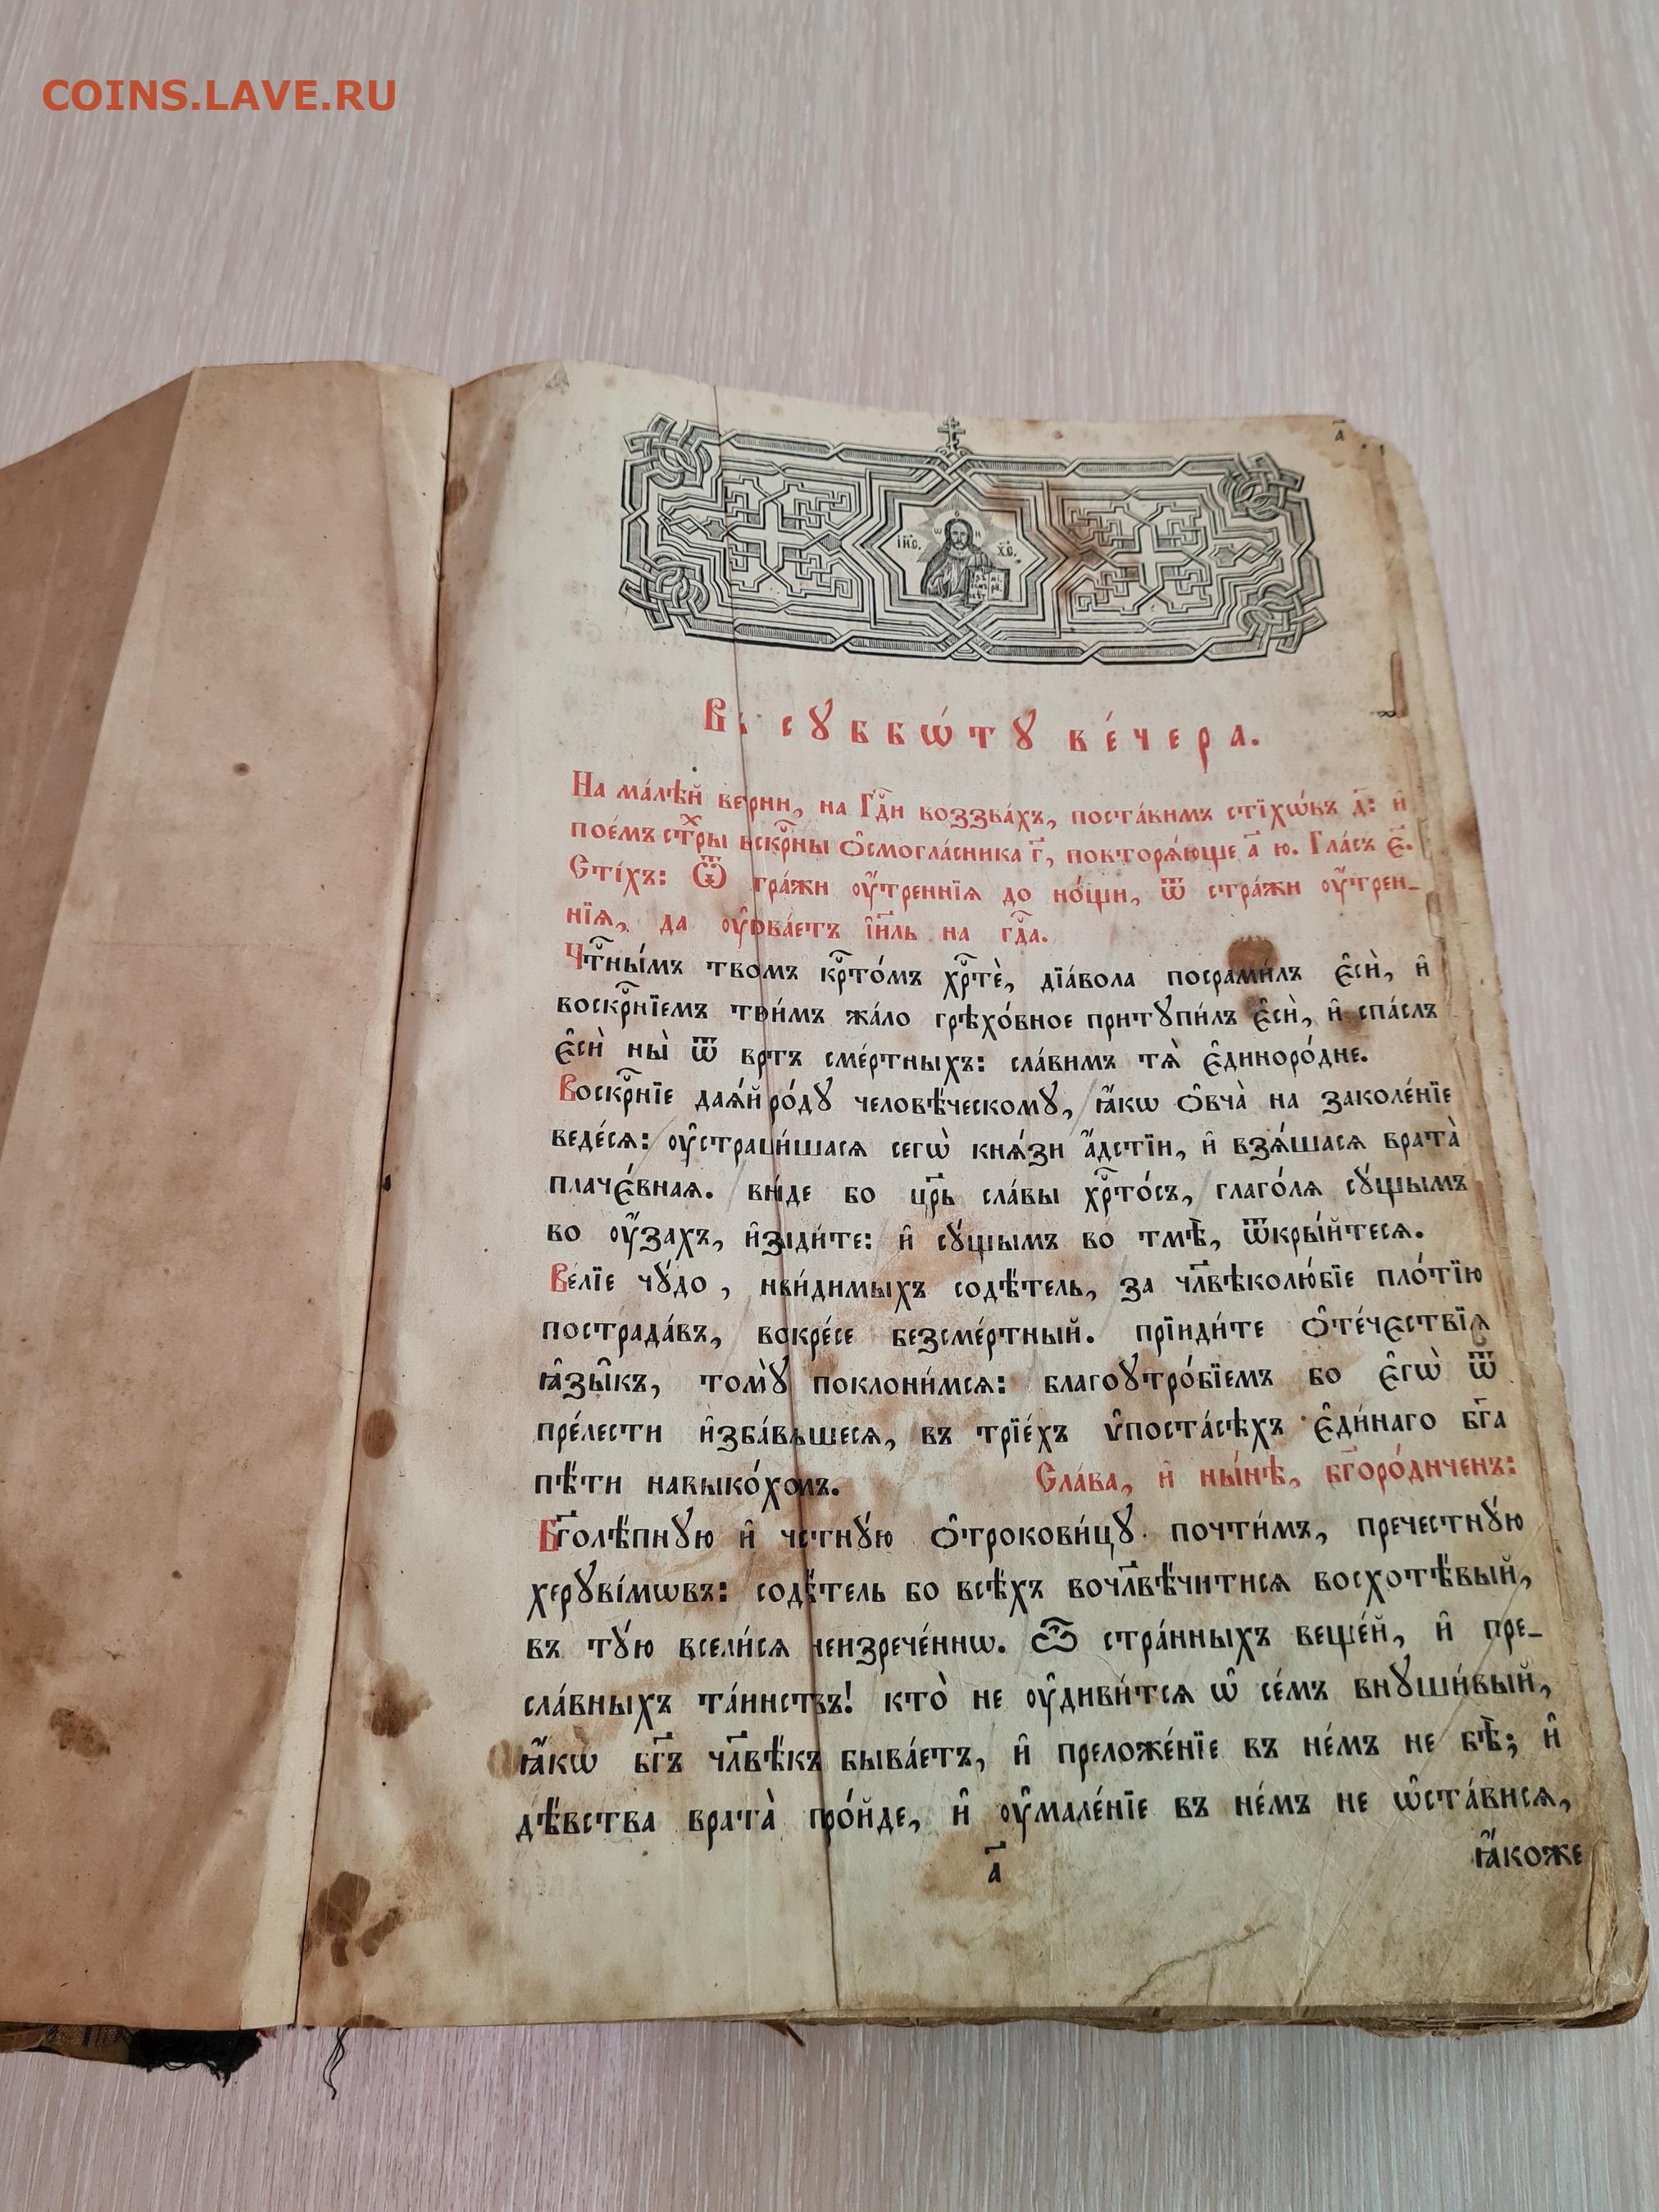 COINS.LAVE.RU
а҃
І҆И҃С. Х҃С.
Въ сꙋббѡ́тꙋ ве́чера.
На ма́лѣй ве҄рни, на Гдⷭ҇и воззва́хъ, поста́вимъ стїхѡ́въ д҃: и҆
пое́мъ стⷯры вскрⷭ҇ны Ѻ҆смогла́сника г҃, повторѧ́юще а҃ ю. Гла́съ є҃.
Сті́хъ: Ѿ стра́жи оу҆́треннїѧ до но́щи, ѿ стра́жи оу҆́трен_
нїѧ, да оу҆пова́етъ і҆и҃ль на гдⷭ҇а.
Чтⷭ҇ны́мъ твоимъ крⷭ҇то́мъ хрⷭ҇тѐ, дїа́вола посрами́лъ є҆сѝ, и҆
воскрⷭ҇нїемъ твои́мъ жа́ло грѣхо́вное притꙋпи́лъ є҆сѝ, и҆ спа́слъ
є҆сѝ ны̀ ѿ вратъ сме́ртныхъ: сла́вимъ тѧ̀ є҆диноро́дне.
Воскрⷭ҇нїе даѧ́й ро́дꙋ человѣ́ческомꙋ, ꙗ҆́кѡ ѻ҆вча̀ на заколе́нїе
веде́сѧ: оу҆страши́шасѧ сегѡ̀ кнѧ́зи а҆́дстїи, и҆ взѧ́шасѧ врата̀
плаче́внаѧ. вни́де бо цр҃ь сла́вы хрⷭ҇то́съ, глаго́лѧ сꙋ́щымъ
во оу҆́захъ, и҆зыди́те: и҆ сꙋ́щымъ во тмѣ̀, ѿкры́йтесѧ.
Ве́лїе чꙋ́до, неви́димыхъ содѣ́тель, за чл҃вѣколю́бїе пло́тїю
пострада́въ, воскре́се безсме́ртный. прїиди́те ѻ҆те́чєствїѧ
ꙗ҆зы̑къ, томꙋ̀ поклони́мсѧ: благоꙋтро́бїемъ бо є҆гѡ̀ ѿ
пре́лести и҆зба́вльшесѧ, въ трїе́хъ ѵ҆поста́сѣхъ є҆ди́наго бг҃а
пѣ́ти навыко́хомъ. Сла́ва, и҆ ны́нѣ, бг҃оро́диченъ:
Бг҃олѣ́пнꙋю и҆ че́стнꙋю ѻ҆трокови́цꙋ почти́мъ, пречестнꙋ́ю
херꙋві́мѡвъ: содѣ́тель бо всѣ́хъ вочл҃вѣ́читисѧ восхотѣ́вый,
въ тꙋ́ю всели́сѧ неизрече́ннѡ. Ѽ стра́нныхъ веще́й, и҆ пре_
сла́вныхъ та́инствъ! кто̀ не оу҆диви́тсѧ ѡ҆ се́мъ внꙋши́вый,
ꙗ҆́кѡ бг҃ъ чл҃вѣ́къ быва́етъ, и҆ преложе́нїе въ не́мъ не бѣ̀; и҆
дѣ́вства врата̀ про́йде, и҆ оу҆мале́нїе въ не́мъ не ѡ҆ста́висѧ,
а҃ ꙗ҆́коже